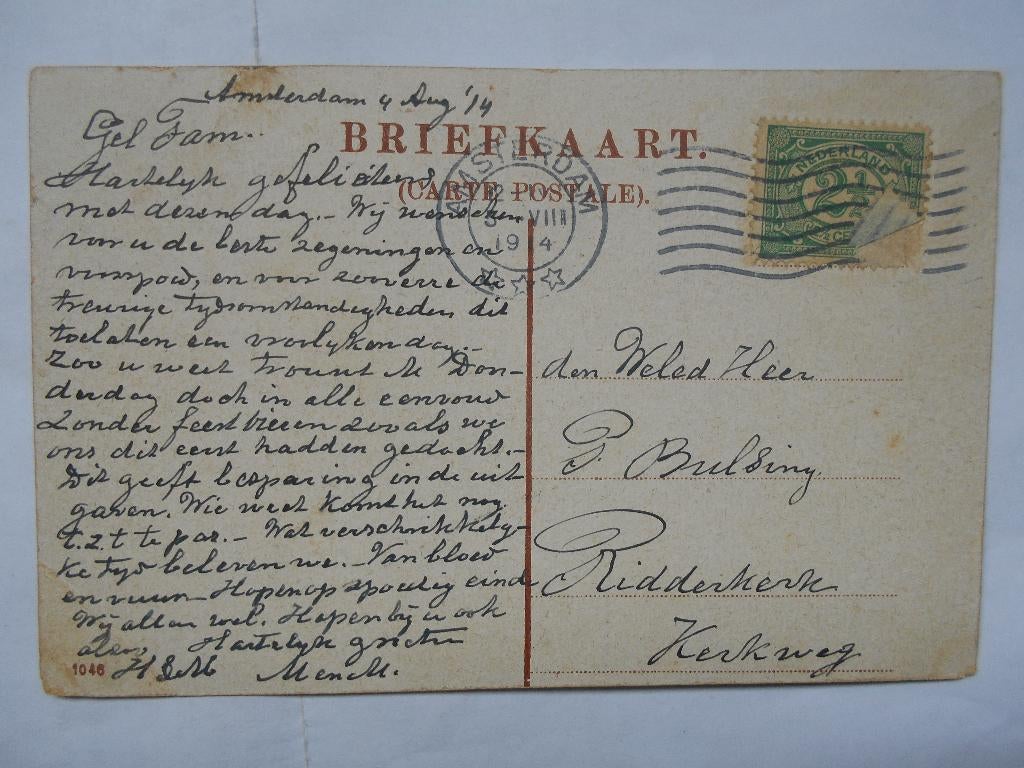 Amsterdam 4 Aug '14
Gel Fam.
BRIEFKAART.
(CARTE POSTALE).
AMSTERDAM
VIII
1914
NEDERLAND
2½
CE
Hartelyk gefeliciteerd
met dezen dag. - Wij wenschen
voor u de beste zegeningen en
voorspoed, en voor zooverre de
treurige tydsomstandigheden dit
toelaten een vroolyken dag. -
Zoo u weet trouwt M Don-
derdag doch in alle eenvoud
Zonder feest vieren zooals we
ons dit eerst hadden gedacht. -
Dit geeft besparing in de uit-
gaven. Wie weet komt het nog
t.z.t te pas. - Wat verschrikkely-
ke tyd beleven we. - Van bloed
en vuur - Hopen op spoedig einde
Wij allen wel. Hopen bij u ook
alzoo, Hartelyk groeten
H
M en M.
1046
den Weled Heer
P. Bulsing
Ridderkerk
Kerkweg